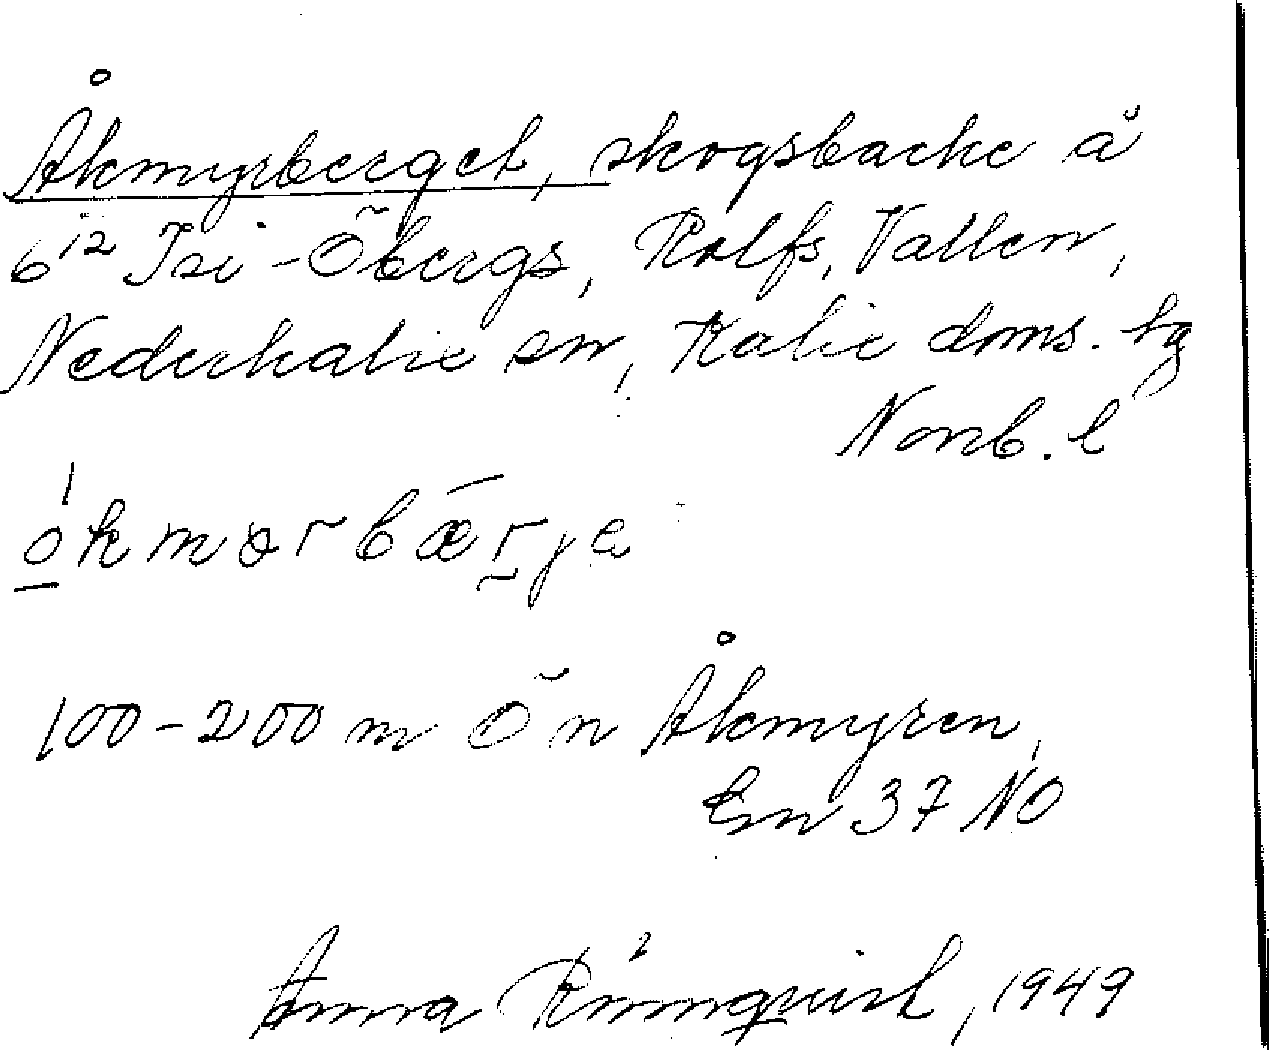 Åkmyrberget, skogsbacke å
6¹² Isi-Öbergs, Rolfs, Vallen,
Nederkalix sn, Kalix doms. tg
Norrb. l
ȯkmɵrbǣrjɛ
100-200 m Ö n Åkmyren,
bm 37 NO
Anna Rönnqvist, 1949